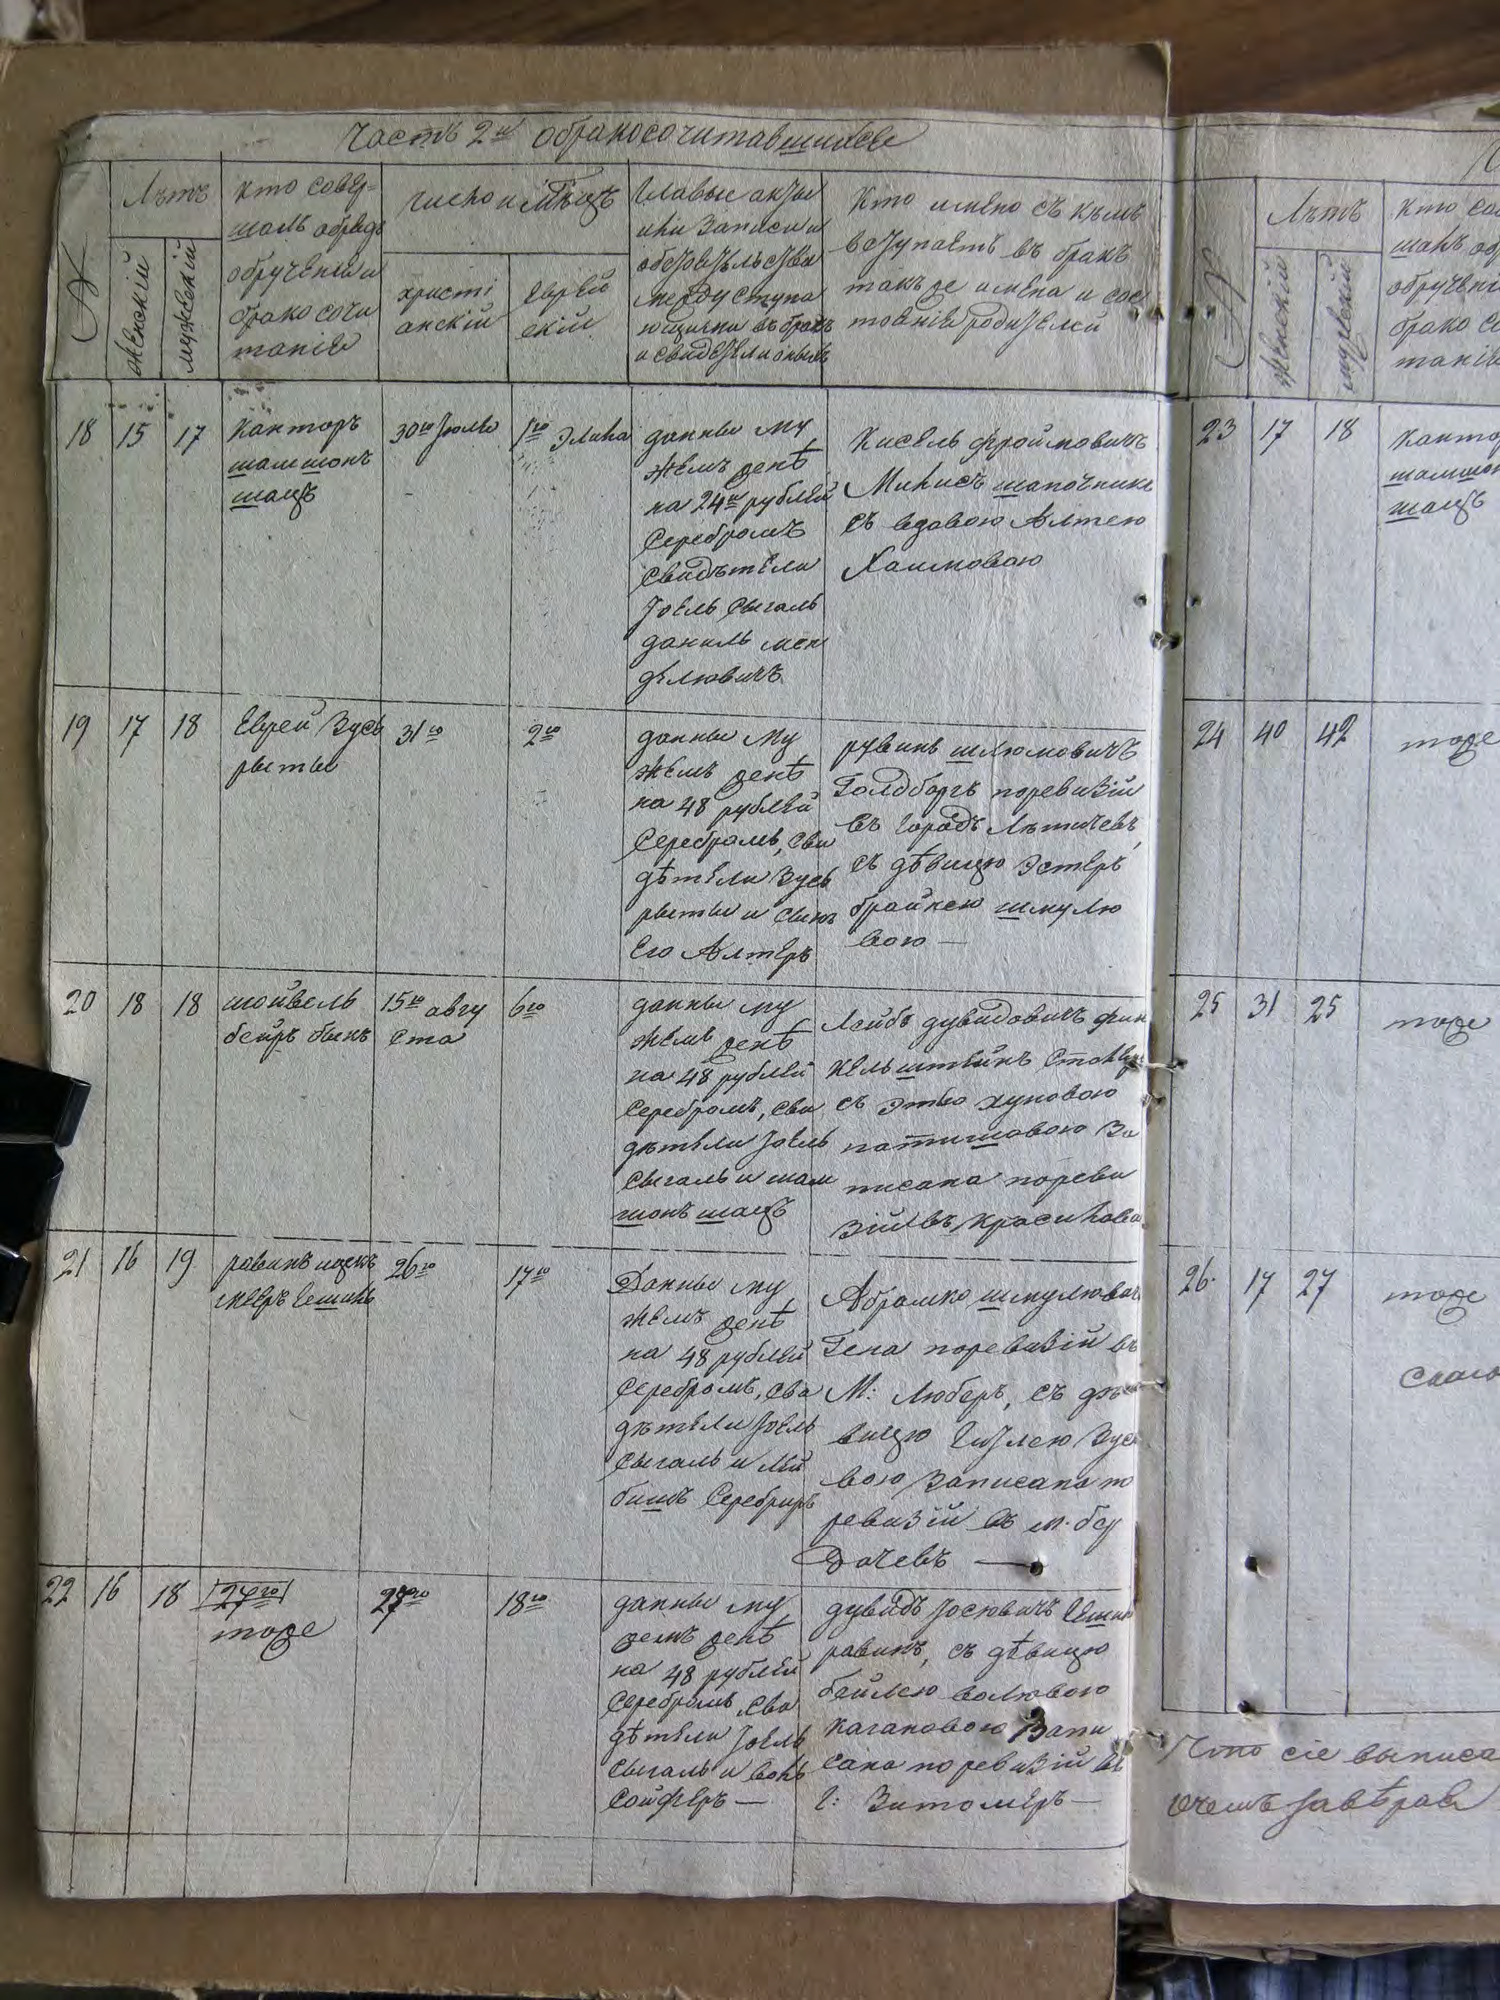 Часть 2я обракосочитавшихсе
№
Лѣтъ
женскій
мужескій
кто совер-
шалъ обрядъ
обрученія и
бракосочи
таніе
число и мѣсяцъ
христі
анскій
еврей
скій
Главые акты
или записи и
между вступа
ющими въ бракъ
и свидетели оныхъ
Кто имено съ кѣмъ
вступаетъ въ бракъ
такъже имена и сос
тояніе родителей
18
15
17
Канторъ
шамшонъ
шацъ
30го Іюля
1го Элила
данные му
жемъ женѣ
на 24и рублей
Серебромъ
свидѣтели
Іоель Сыгаль
даниль мен
дѣловичъ
Кисель фроймовичъ
съ вдовою Алтею
Хаимовою
19
17
18
Еврей Зусь
рыты
31го
2го
данные му
жемъ женѣ
на 48 рублей
Серебромъ, сви
дѣтели Зусь
рыты и сынъ
Его Алтеръ
рувинъ шлюмовичъ
Голдборгъ поревизій
въ городъ Лѣтичевъ,
съ дѣвицю Эстеръ
брайнею шмулю
вою —
20
18
18
шойвель
бейръ бынъ
15го авгу
ста
6го
данные му
жемъ женѣ
на 48 рублей
Серебромъ, сви
дѣтели Іоель
Сыгаль и шам
шонъ шацъ
Лейбъ дувидовичъ фин
кельштейнъ столяръ
съ Этею
писана пореви
зій въ Красилова
21
16
19
равинъ ицекъ
мееръ Гешинъ
26го
17го
Данные му
жемъ женѣ
на 48 рублей
Серебромъ, сви
дѣтели Іоель
Сыгаль и лей
бишъ Серебриръ
Абрамко шмулювич
Гена поревизій въ
М: Люберъ, съ дѣ
вицю Гитлею Зусе
вою Записана по
ревизій въ м. бер
дочевъ —
22
16
18
27го
тоже
27го
18го
данные му
жемъ женѣ
на 48 рублей
Серебромъ, сви
дѣтели Іоель
Сыгаль и Волъ
Сойферъ —
дувидъ Іосювичъ Гешин
равинъ, съ дѣвицю
бейлею волювою
Кагановою Запи
сана поревизій въ
г: Житомеръ —
№
Лѣтъ
женскій
мужескій
кто со
шалъ об
обручені
брако со
таніе
23
17
18
Канто
шамшо
шацъ
24
40
42
тоже
25
31
25
тоже
26.
17
27
тоже
Что сіе выписа